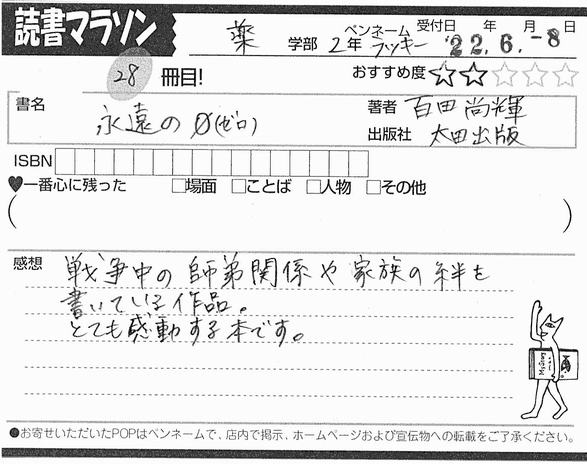 読書マラソン
薬 学部 2年 ペンネーム クッキー 受付日 年 月 日 '22.6.-8
28 冊目! おすすめ度 ★★☆☆☆
書名 永遠の0(ゼロ)
著者 百田尚輝
出版社 太田出版
ISBN
♥一番心に残った □場面 □ことば □人物 □その他
( )
感想 戦争中の師弟関係や家族の絆を
書いている作品。
とても感動する本です。
●お寄せいただいたPOPはペンネームで、店内で掲示、ホームページおよび宣伝物への転載をご了承ください。